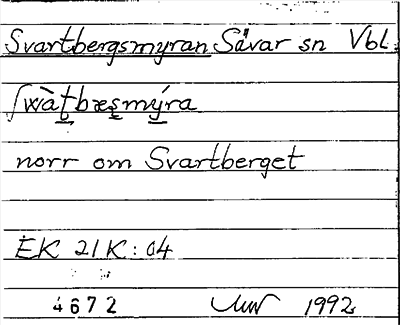 Svartbergsmyran Sävar sn Vbl.
ʃwàt̠bæs̠mýra
norr om Svartberget
EK 21K:04
4672 1992